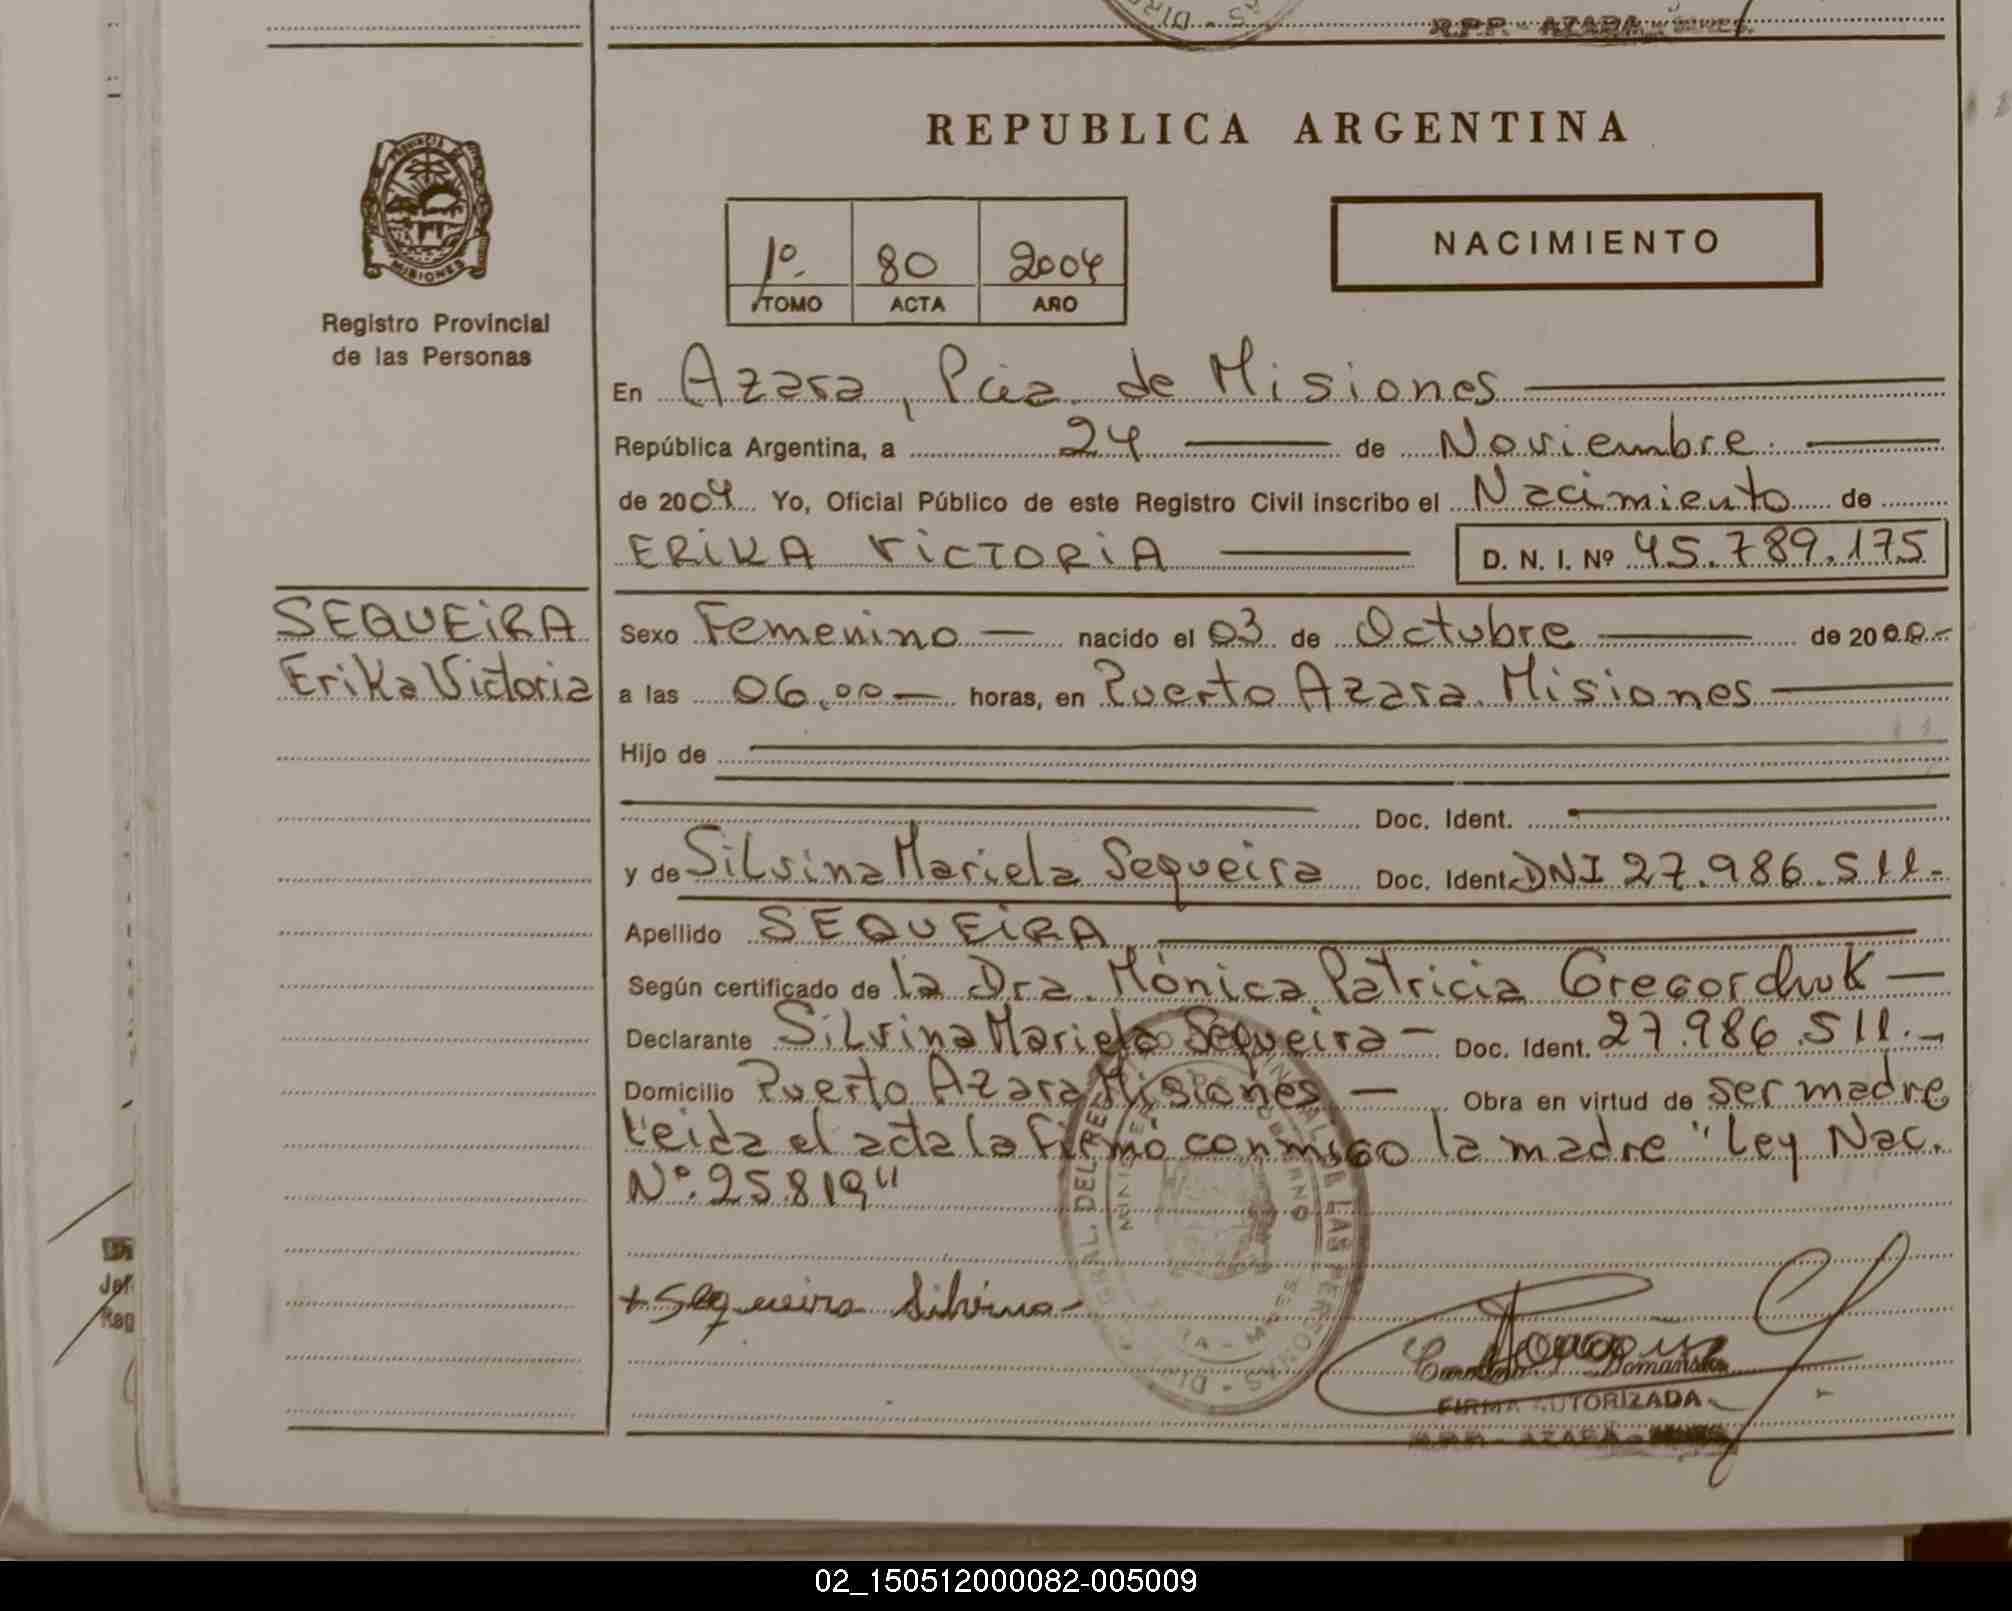 R.P.P. - AZARA - Mnes.
PROVINCIA DE
MISIONES
Registro Provincial
de las Personas
REPUBLICA ARGENTINA
NACIMIENTO
1º 80 2004
TOMO ACTA AÑO
En Azara, Pcia. de Misiones
República Argentina, a 24 de Noviembre
de 2004 Yo, Oficial Público de este Registro Civil inscribo el Nacimiento de
ERiKA ViCTORiA D. N. I. Nº 45.789.175
SEQUEiRA
Erika Victoria
Sexo Femenino nacido el 03 de Octubre de 2000.-
a las 06,00 horas, en Puerto Azara. Misiones
Hijo de
Doc. Ident.
y de Silvina Mariela Sequeira Doc. Ident. DNI 27.986.511.-
Apellido SEQUEiRA
Según certificado de la Dra. Mónica Patricia Gregorchuk
Declarante Silvina Mariela Sequeira - Doc. Ident. 27.986.511.-
Domicilio Puerto Azara Misiones - Obra en virtud de ser madre
Leida el acta la firmó conmigo la madre "Ley Nac.
Nº 25.819"
+ Sequeira Silvina-
FIRMA AUTORIZADA
R.P.P. - AZARA -
02_150512000082-005009